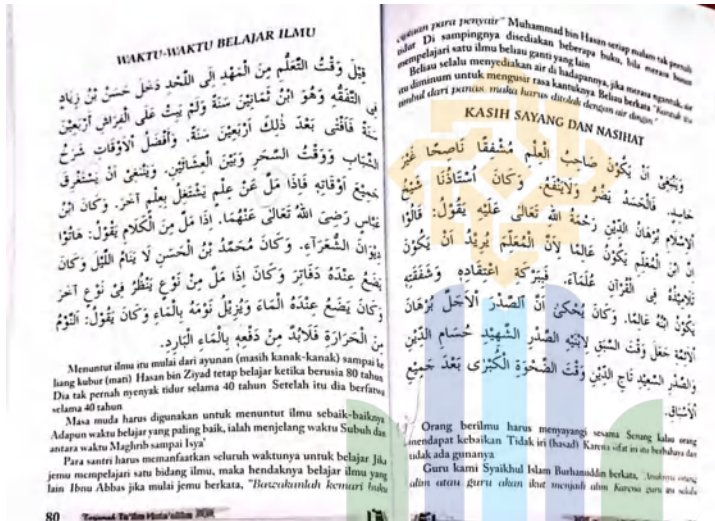 WAKTU-WAKTU BELAJAR ILMU
قِيْلَ وَقْتُ التَّعَلُّمِ مِنَ الْمَهْدِ اِلَى اللَّحْدِ دَخَلَ حَسَنُ بْنُ زِيَادٍ
فِى التَّفَقُّهِ وَهُوَ ابْنُ ثَمَانِيْنَ سَنَةً وَلَمْ يَبِتْ عَلَى الْفِرَاشِ اَرْبَعِيْنَ
سَنَةً فَاَفْتَى بَعْدَ ذٰلِكَ اَرْبَعِيْنَ سَنَةً. وَاَفْضَلُ الْاَوْقَاتِ شَرْخُ
الشَّبَابِ وَوَقْتُ السَّحَرِ وَبَيْنَ الْعِشَائَيْنِ. وَيَنْبَغِىْ اَنْ يَسْتَغْرِقَ
جَمِيْعَ اَوْقَاتِهِ فَاِذَا مَلَّ عَنْ عِلْمٍ يَشْتَغِلُ بِعِلْمٍ آخَرَ. وَكَانَ ابْنُ
عَبَّاسٍ رَضِىَ اللهُ تَعَالَى عَنْهُمَا. اِذَا مَلَّ مِنَ الْكَلَامِ يَقُوْلُ: هَاتُوْا
دِيْوَانَ الشُّعَرَآءِ. وَكَانَ مُحَمَّدُ بْنُ الْحَسَنِ لَا يَنَامُ اللَّيْلَ وَكَانَ
يَضَعُ عِنْدَهُ دَفَاتِرَ وَكَانَ اِذَا مَلَّ مِنْ نَوْعٍ يَنْظُرُ فِىْ نَوْعٍ آخَرَ
وَكَانَ يَضَعُ عِنْدَهُ الْمَاءَ وَيُزِيْلُ نَوْمَهُ بِالْمَاءِ وَكَانَ يَقُوْلُ: اَلنَّوْمُ
مِنَ الْحَرَارَةِ فَلَابُدَّ مِنْ دَفْعِهِ بِالْمَاءِ الْبَارِدِ.
Menuntut ilmu itu mulai dari ayunan (masih kanak-kanak) sampai ke
liang kubur (mati) Hasan bin Ziyad tetap belajar ketika berusia 80 tahun
Dia tak pernah nyenyak tidur selama 40 tahun Setelah itu dia berfatwa
selama 40 tahun
Masa muda harus digunakan untuk menuntut ilmu sebaik-baiknya
Adapun waktu belajar yang paling baik, ialah menjelang waktu Subuh dan
antara waktu Maghrib sampai Isya'
Para santri harus memanfaatkan seluruh waktunya untuk belajar Jika
jemu mempelajari satu bidang ilmu, maka hendaknya belajar ilmu yang
lain Ibnu Abbas jika mulai jemu berkata, "Bawakanlah kemari buku
80 Terjemah Ta'lim Muta'allim
para penyair" Muhammad bin Hasan setiap malam tak pernah
tidur Di sampingnya disediakan beberapa buku, bila merasa bosan
mempelajari satu ilmu beliau ganti yang lain
Beliau selalu menyediakan air di hadapannya, jika merasa ngantuk, air
itu diminum untuk mengusir rasa kantuknya Beliau berkata "Kantuk itu
timbul dari panas, maka harus ditolak dengan air dingin"
KASIH SAYANG DAN NASIHAT
وَيَنْبَغِىْ اَنْ يَكُوْنَ صَاحِبُ الْعِلْمِ مُشْفِقًا نَاصِحًا غَيْرَ
حَاسِدٍ. فَالْحَسَدُ يَضُرُّ وَلَايَنْفَعُ. وَكَانَ اُسْتَاذُنَا شَيْخُ
الْاِسْلَامِ بُرْهَانُ الدِّيْنِ رَحْمَةُ اللهِ تَعَالَى عَلَيْهِ يَقُوْلُ: قَالُوْا
اِنَّ ابْنَ الْمُعَلِّمِ يَكُوْنُ عَالِمًا لِاَنَّ الْمُعَلِّمَ يُرِيْدُ اَنْ يَكُوْنَ
تَلَامِيْذُهُ فِى الْقُرْآنِ عُلَمَآءَ. فَبِبَرَكَةِ اعْتِقَادِهِ وَشَفَقَتِهِ
يَكُوْنُ ابْنُهُ عَالِمًا. وَكَانَ يُحْكَى اَنَّ الصَّدْرَ الْاَجَلَّ بُرْهَانَ
الْاَئِمَّةِ جَعَلَ وَقْتَ السَّبَقِ لِابْنَيْهِ الصَّدْرِ الشَّهِيْدِ حُسَامِ الدِّيْنِ
وَالصَّدْرِ السَّعِيْدِ تَاجِ الدِّيْنِ وَقْتَ الضَّحْوَةِ الْكُبْرَى بَعْدَ جَمِيْعِ
الْاَسْبَاقِ.
Orang berilmu harus menyayangi sesama Senang kalau orang
mendapat kebaikan Tidak iri (hasad) Karena sifat iri itu berbahaya dan
tidak ada gunanya
Guru kami Syaikhul Islam Burhanuddin berkata, "Anaknya orang
alim atau guru akan ikut menjadi alim Karena guru itu selalu